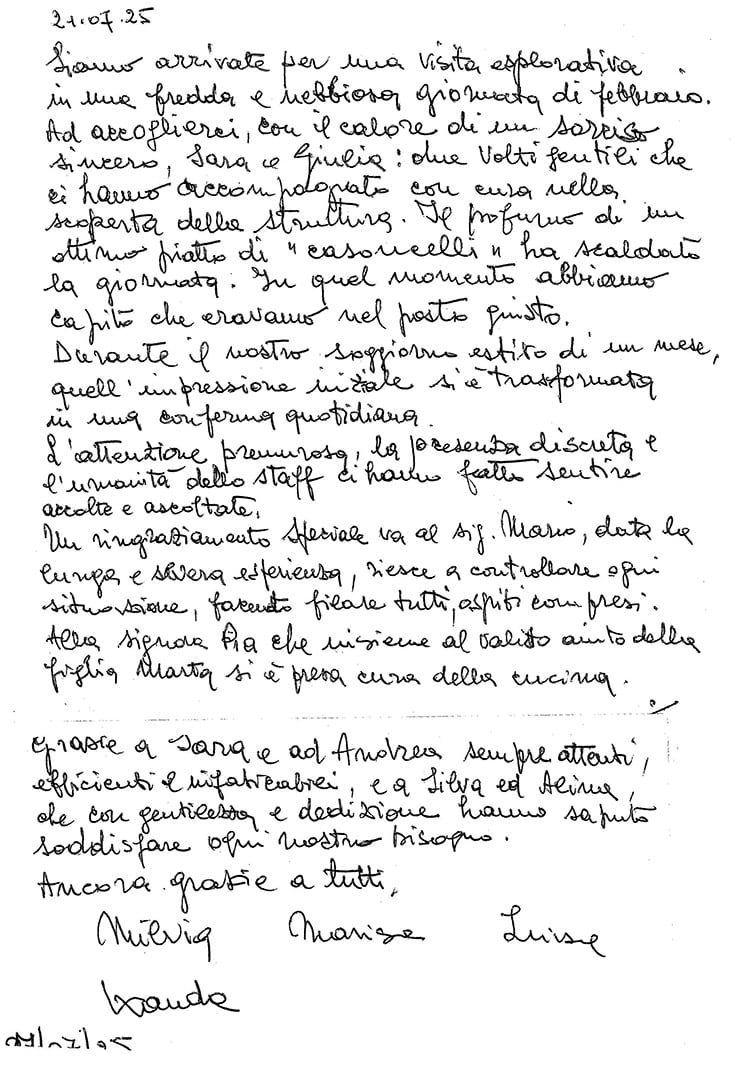 21.07.25
Siamo arrivate per una visita esplorativa
in una fredda e nebbiosa giornata di febbraio.
Ad accoglierci, con il calore di un sorriso
sincero, Sara e Giulia: due volti gentili che
ci hanno accompagnato con cura nella
scoperta della struttura. Il profumo di un
ottimo piatto di "casoncelli" ha scaldato
la giornata. In quel momento abbiamo
capito che eravamo nel posto giusto.
Durante il nostro soggiorno estivo di un mese,
quell'impressione iniziale si è trasformata
in una conferma quotidiana.
L'attenzione premurosa, la presenza discreta e
l'umanità dello staff ci hanno fatto sentire
accolte e ascoltate.
Un ringraziamento speciale va al sig. Mario, data la
lunga e severa esperienza, riesce a controllare ogni
situazione, facendo filare tutti, ospiti compresi.
Alla signora Pia che insieme al valido aiuto della
figlia Marta si è presa cura della cucina.
Grazie a Sara e ad Andrea sempre attenti,
efficienti e infaticabili, e a Silva ed Alima,
che con gentilezza e dedizione hanno saputo
soddisfare ogni nostro bisogno.
Ancora grazie a tutti,
Milvia Marisa Luisa
Wanda